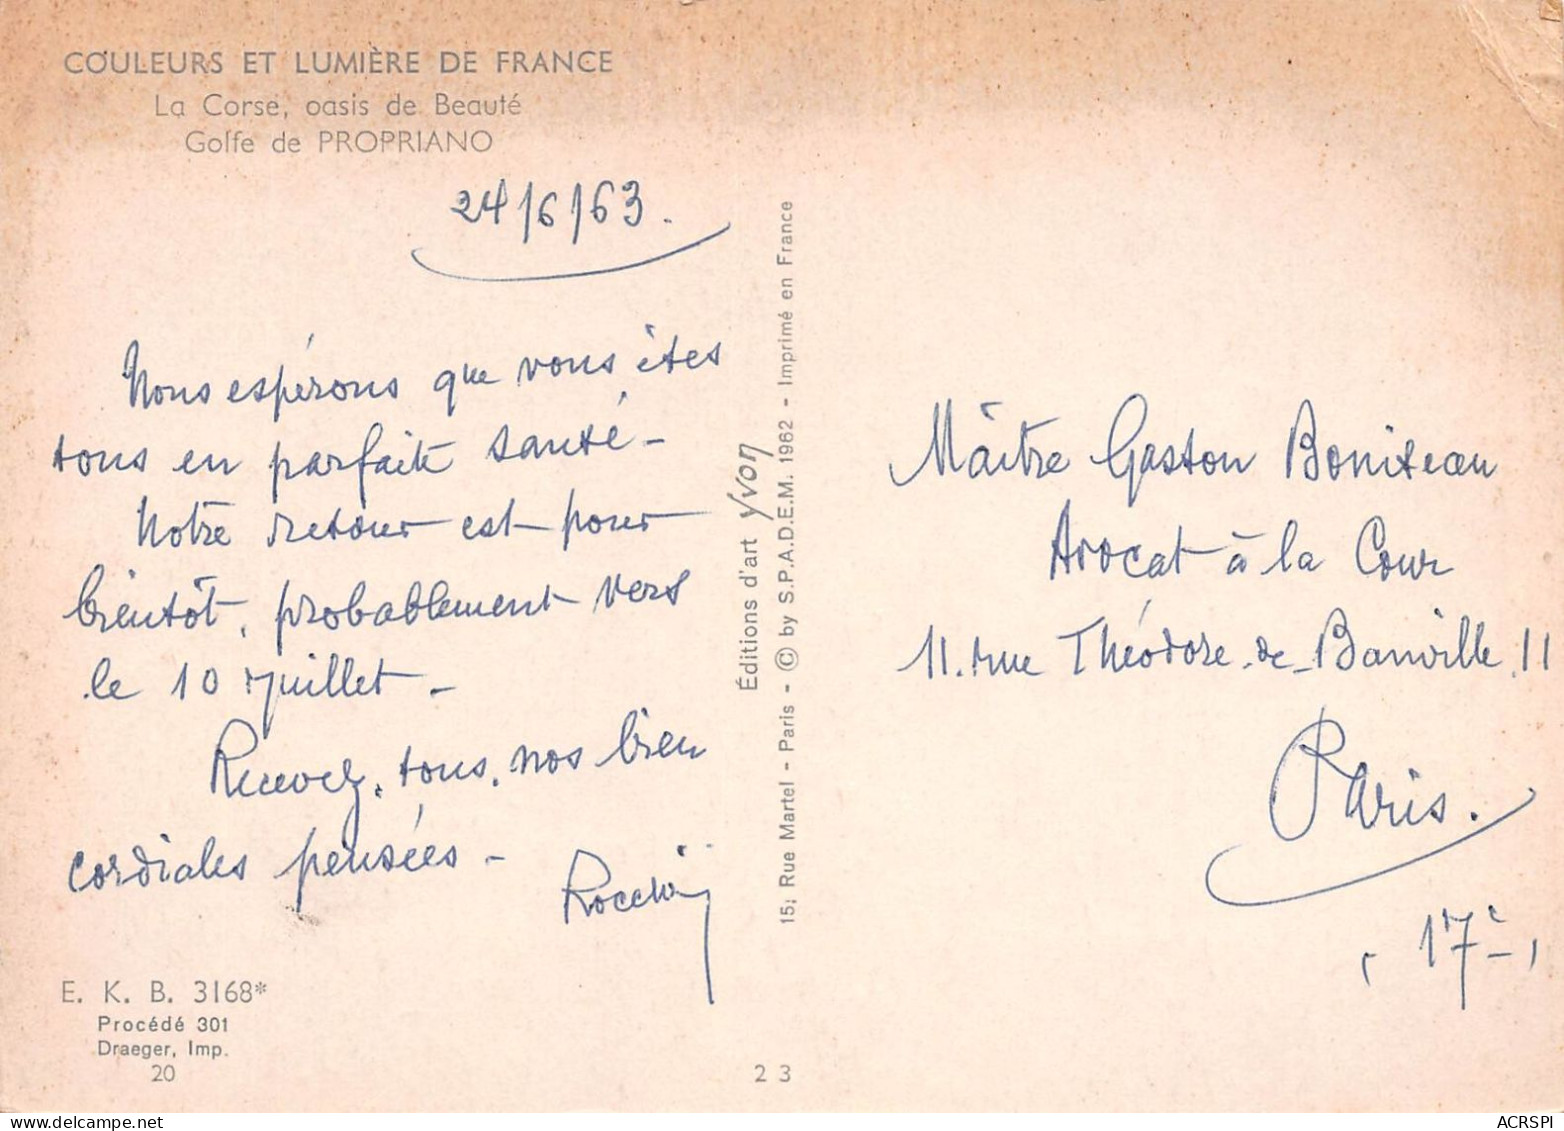 COULEURS ET LUMIÈRE DE FRANCE
La Corse, oasis de Beauté
Golfe de PROPRIANO
24/6/63.
Nous espérons que vous êtes
tous en parfaite santé -
Notre retour est pour
bientôt, probablement vers
le 10 juillet -
Recevez, tous, nos bien
cordiales pensées -
E. K. B. 3168*
Procédé 301
Draeger, Imp.
20
Éditions d'art yvon
15, Rue Martel - Paris - © by S.P.A.D.E.M. 1962 - Imprimé en France
23
Maître Gaston Boniteau
Avocat à la Cour
11. rue Théodore de Banville, 11
Paris.
( 17è )
delcampe.net
ACRSPI